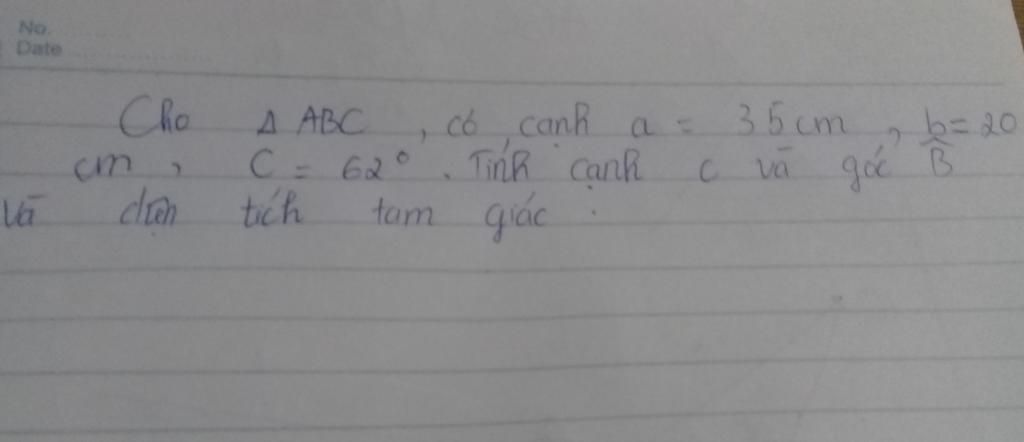 No.
Date
Cho Δ ABC, có cạnh a = 35cm, b = 20
cm, C = 62°. Tính cạnh c và góc B̂
và diện tích tam giác.